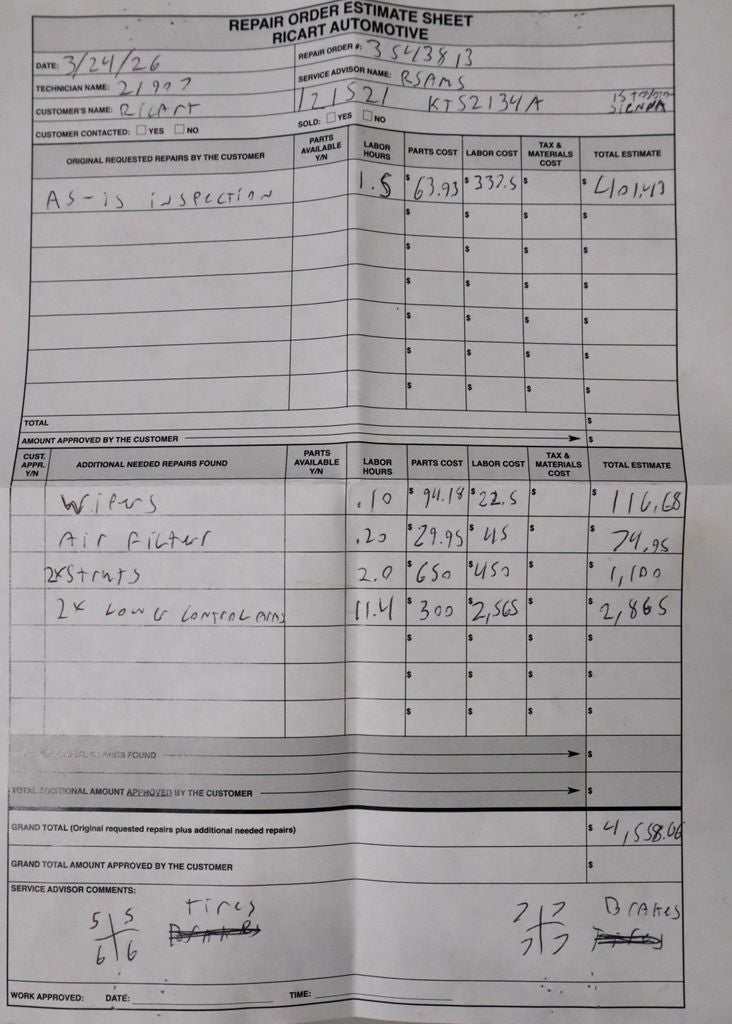 REPAIR ORDER ESTIMATE SHEET
RICART AUTOMOTIVE
DATE: 3/24/26
REPAIR ORDER #: 3543813
TECHNICIAN NAME: 21907
SERVICE ADVISOR NAME: RSAMS
CUSTOMER'S NAME: RICART
121521 KTS2134A
SIENNA
CUSTOMER CONTACTED: ☐ YES ☐ NO
SOLD: ☐ YES ☐ NO
ORIGINAL REQUESTED REPAIRS BY THE CUSTOMER PARTS AVAILABLE Y/N LABOR HOURS PARTS COST LABOR COST TAX & MATERIALS COST TOTAL ESTIMATE
AS-is inspection 1.5 $63.93 $337.5 $ $401.43
$ $ $ $
$ $ $ $
$ $ $ $
$ $ $ $
$ $ $ $
$ $ $ $
TOTAL $
AMOUNT APPROVED BY THE CUSTOMER $
CUST. APPR. Y/N ADDITIONAL NEEDED REPAIRS FOUND PARTS AVAILABLE Y/N LABOR HOURS PARTS COST LABOR COST TAX & MATERIALS COST TOTAL ESTIMATE
Wipers .10 $94.18 $22.5 $ $116.68
Air Filter .20 $29.95 $45 $ $74.95
2x Struts 2.0 $650 $450 $ $1,100
2x Lower Control Arms 11.4 $300 $2,565 $ $2,865
$ $ $ $
$ $ $ $
$ $ $ $
REPAIRS FOUND $
TOTAL ADDITIONAL AMOUNT APPROVED BY THE CUSTOMER $
GRAND TOTAL (Original requested repairs plus additional needed repairs) $4,558.06
GRAND TOTAL AMOUNT APPROVED BY THE CUSTOMER $
SERVICE ADVISOR COMMENTS:
5 5 Tires
6 6
7 7 Brakes
7 7
WORK APPROVED: DATE: TIME: